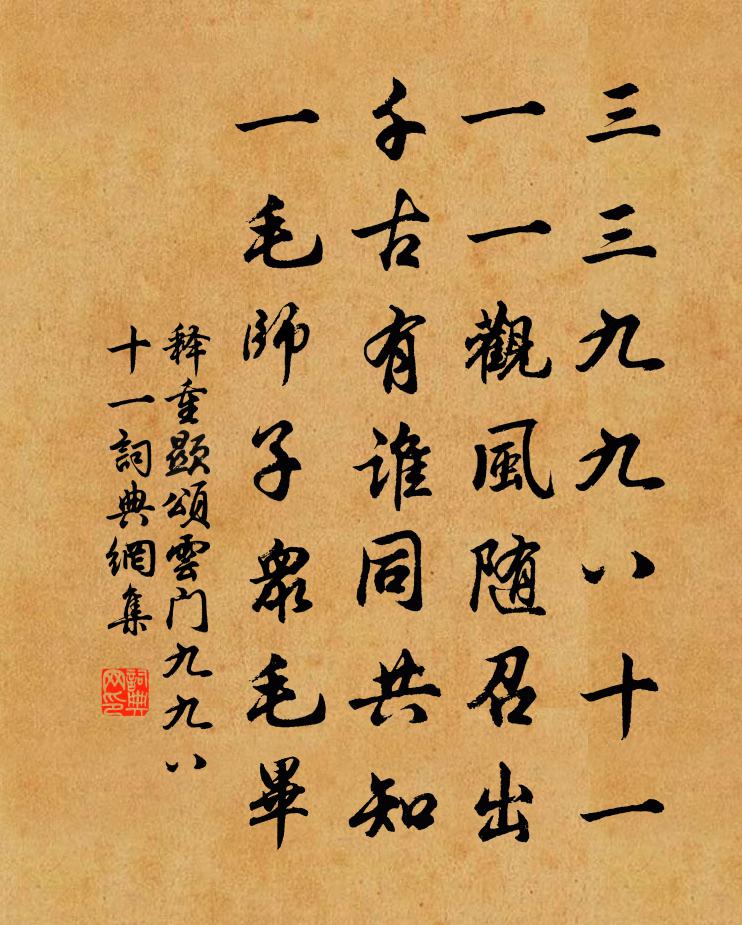 三三九九八十一
一一觀風随召出
千古有誰同共知
一毛師子眾毛畢
释重顯頌雲门九九八
十一詞典網集
詞典
网印